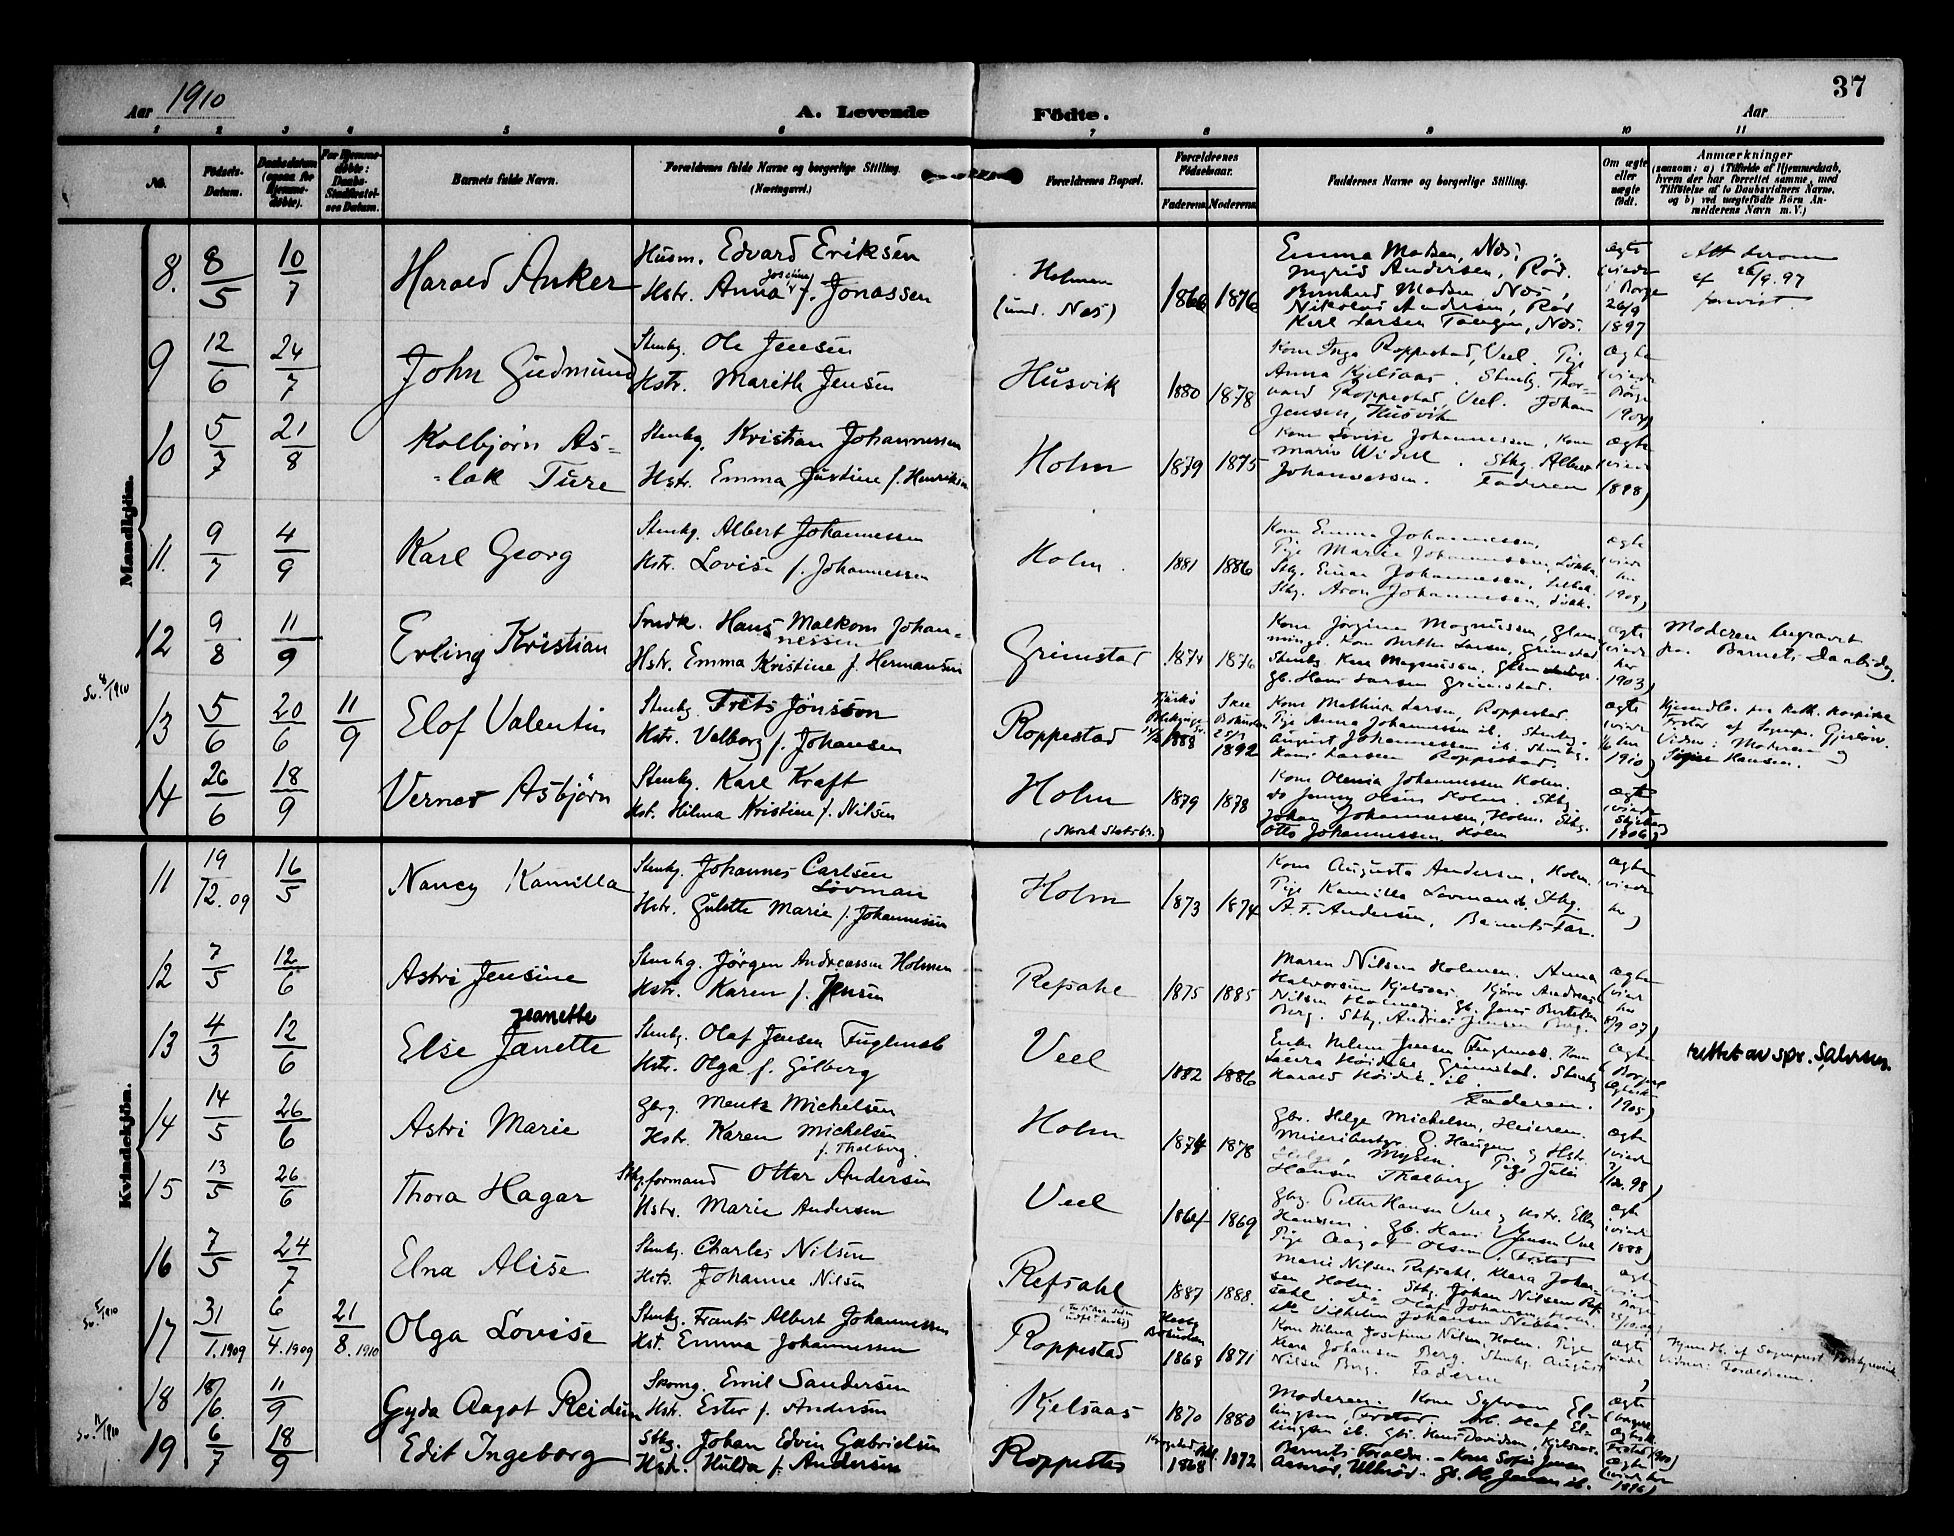 Aar 1910
A. Levende
Födte.
Aar
37
1 2 3 4 5 6 7 8 9 10 11
No.
Födsels-
Datum.
Daabsdatum
(ogsaa for
Hjemme-
døbte).
For Hjemme-
døbte:
Daabs-
Stadfæstel-
ses Datum.
Barnets fulde Navn.
Forældrenes fulde Navne og borgerlige Stilling.
(Næringsvei.)
Forældrenes Bopæl.
Forældrenes
Födselsaar.
Faderens Moderens
Faddernes Navne og borgerlige Stilling.
Om ægte
eller
uægte
født.
Anmærkninger
(saasom: a) i Tilfælde af Hjemmedaab,
hvem der har forrettet samme, med
Tilföielse af to Daabsvidners Navne,
og b) ved uægtefödte Börn An-
melderens Navn m. V.)
Mandkjön.
8. 8/5 10/7 Harald Anker
Husm. Edvard Eriksen
Hstr. Anna Josefine f. Jonassen
Holmen
(und. Næs)
1866 1876
Emma Madsen, Næs,
Ingrid Andersen, Rød.
Bernhard Madsen Næs,
Nikolai Andersen, Rød
Karl Larsen Tangen, Næs.
ægte
(viede
i Borge
26/9
1897
Att. derom
af 26/9.97
forevist
9 12/6 24/7 John Gudmund
Stenhg. Ole Jensen
Hstr. Marith Jensen
Husvik
1880 1878
Kone Inga Roppestad, Veel. Pige
Anna Kjelsaas. Stenhg. Thor-
vard Roppestad, Veel. Johan
Jensen, Husvik
ægte
(viede
Borge
10 5/7 21/8 Kolbjørn As-
-lak Ture
Stenhg. Kristian Johannessen
Hstr. Emma Justine f. Henriksen
Holm
1879 1875
Kone Lovise Johannessen, Kone
Marie Widerl. Sthg. Albert
Johannessen. Faderen
ægte
(viede
1898)
11. 9/7 4/9 Karl Georg
Stenhg. Albert Johannessen
Hstr. Lovise f. Johannessen
Holm.
1881 1886
Kone Emma Johannessen,
Pige Marie Johannessen,
Sthg. Einar Johannessen,
Sthg. Aron Johannessen,
ægte
(viede
her
1909)
12 9/8 11/9 Erling Kristian
Snedk. Hans Malkom Johan-
nessen
Hstr. Emma Kristine f. Hermansen
Grimstad
1874 1876
Kone Jørgine Magnussen, Glem-
minge. Kone Berthe Larsen, Grimstad
Stenhg Karl Magnussen, Glemminge.
Gb. Hans Larsen Grimstad.
ægte
(viede
her
1903)
Moderen begravet
paa Barnets Daabsdag.
Sv. 8/1910
13 5/6 20/6 11/9 Elof Valentin
Stenhg. Frits Jönsson
Hstr. Valborg f. Johansen
Roppestad
1888
Skee
Bohuslen
25/1
1892
Kone Mathilde Larsen, Roppestad.
Pige Anna Johannessen ib. Stenhg.
August Johannessen ib. Stenhg.
Hans Larsen Roppestad.
ægte
(viede
1910)
Hjemdb. paa kath. hospital
Frstad af Sognepr. Gjerløw.
Vidner: Moderen og
Hansen.
14 26/6 18/9 Verner Asbjørn
Stenhg. Karl Kraft
Hst. Hilma Kristine f. Nilsen
Holm
(Norsk Statsbr.)
1879 1878
Kone Olenia Johannessen Holm.
do Jenny Olsen Holm. Sthg.
Johan Johannessen, Holm. Sthg.
Otto Johannessen Holm
ægte
(viede
Skjeberg
1906)
Kvindekjön.
11 19/12.09 16/5 Nancy Kamilla
Stenhg. Johannes Carlsen
Lövman
Hstr. Gulette Marie f. Johannessen
Holm
1873 1874
Kone Augusta Andersen, Holm.
Pige Kamilla Lovmand, Sthg.
A. F. Andersen, Barnets Far.
ægte
(viede
her)
12 7/5 12/6 Astri Jensine
Stenhg. Jörgen Andreassen Holmen
Hstr. Karen f. Jensen
Refsahl
1875 1885
Maren Nilsen Holmen. Anna
Halvorsen Kjelsaas. Kjöre Andreas
Nilsen Holmen, gb. Jens Bertelsen
Berg. Sthg. Andreas Jensen Berg.
ægte
(viet
her
07)
13 4/3 12/6 Else Janette
Jeanette
Stenhg. Olaf Jensen Fuglenæb
Hstr. Olga f. Gilberg
Veel
1882 1886
Enke Helene Jensen Fuglenæb. Kone
Laura Höidahl, Grimstad. Stenhg
Harald Höidal ib.
Faderen.
ægte
1905)
rettet av spr. Salvesen.
14 14/5 26/6 Astri Marie
Gbrg. Mentz Michelsen
Hstr. Karen Michelsen
f. Thalberg.
Holm
1874 1878
Gbr. Helge Michelsen, Heieren.
Meieribestyr. G. Haugen og Hstr.
Helga, Mysen. Pige Julie
Hansen Thalberg
ægte
(viede
98)
15 13/5 26/6 Thora Hagar
Sthg.formand Otter Andersen
Hstr. Marie Andersen
Veel
1864 1869
Gbg. Petter Hansen Veel og Hstr. Ellen
Hanssen. Gb. Hans Jensen Veel
Pige Aagot Olsen, Frstad
ægte
(viede
1888)
16 7/5 24/7 Elna Alise
Stenhg. Charles Nilsen
Hstr. Johanne Nilsen
Refsahl
1887 1888.
Marie Nilsen Refsahl, Klara Johan-
sen Holm. Sthg. Johan Nilsen Ref-
sahl. do Olaf Johansen, Holm.
do Vilhelm Johansen Nabba.
ægte
(viede
Borge
Sv. 5/1910
17 31/1.1909 6/4.1909 21/8.1910 Olga Lovise
Stenhg. Frants Albert Johannessen
Hst. Emma Johannessen
Roppestad
Bohuslen
1868 1871
Kone Hilma Josefine Nilsen, Holm. Pige
Klara Johansen Berg. Stenhg. August
Nilsen Berg. Faderen
ægte
(viede
)
Hjemdb. af Sognepræst
Vidner: Forældrene.
18 18/6. 11/9 Gyda Aagot Reidun
Skomg. Emil Sandersen
Hstr. Ester f. Andersen
Kjelsaas
1870 1880
Moderen. Kone Sylvan El-
lingsen, Frstad. Arb. Olaf El-
lingsen ib. Gbr. Hans Davidsen, Kjelsaas.
ægte
Frstad 1900)
Sv. 11/1910
19 6/7 18/9 Edit Ingeborg
Sthg. Johan Edvin Gabrielsen
Hstr. Hulda f. Andersen
Roppestad
1868 1872
Barnets Forældre. - Kone Sofie Jensen
Asmröd, Ulleröd. gb. Ole Jensen ib.
ægte
(viede her
1896)